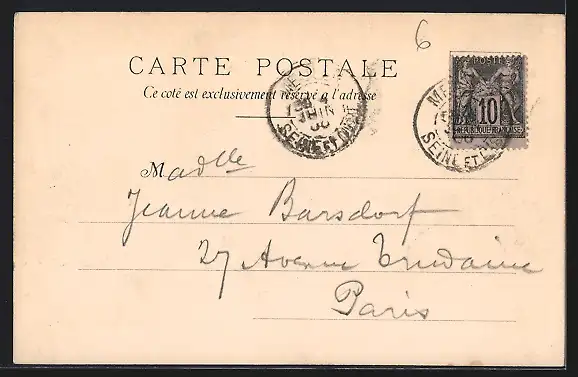 6
CARTE POSTALE
Ce coté est exclusivement réservé a l'adresse
JUIN
SEINE ET OISE
POSTES
10
REPUBLIQUE FRANÇAISE
SEINE ET OISE
Madlle
Jeanne Barsdorf
27 Avenue Trudaine
Paris